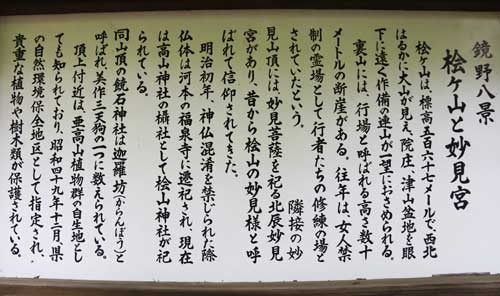 鏡野八景
桧ヶ山と妙見宮
桧ヶ山は、標高五百六十七メールで、西北
はるかに大山が見え、院庄、津山盆地を眼
下に遠く作備の連山が一望におさめられる。
裏山には、行場と呼ばれる高さ数十
メートルの断崖がある。往年は、女人禁
制の霊場として行者たちの修練の場と
されていたという。　隣接の妙
見山頂には、妙見菩薩を祀る北辰妙見
宮があり、昔から桧山の妙見様と呼
ばれて信仰されてきた。
明治初年、神仏混淆を禁じられた際
仏体は河本の福泉寺に遷祀され、現在
は高山神社の摂社として桧山神社が祀
られている。
同山頂の鏡石神社は迦羅坊(からんぼう)と
呼ばれ、美作三天狗の一つに数えられている。
頂上付近は、亜高山植物群の自生地とし
ても知られており、昭和四十九年十二月、県
の自然環境保全地区として指定され、
貴重な植物や樹木類が保護されている。